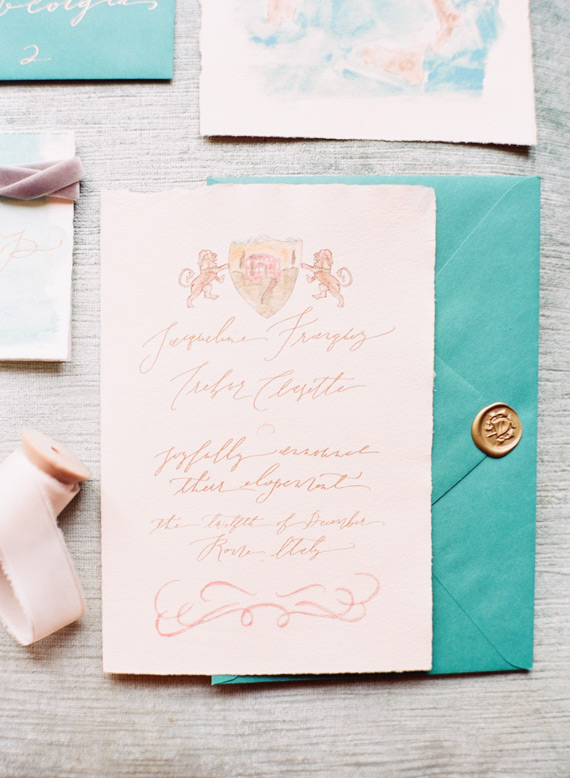 Georgia
2
P
Jacqueline
Trebor Clarette
joyfully announce
their elopement
the twelfth of December
Rome, Italy